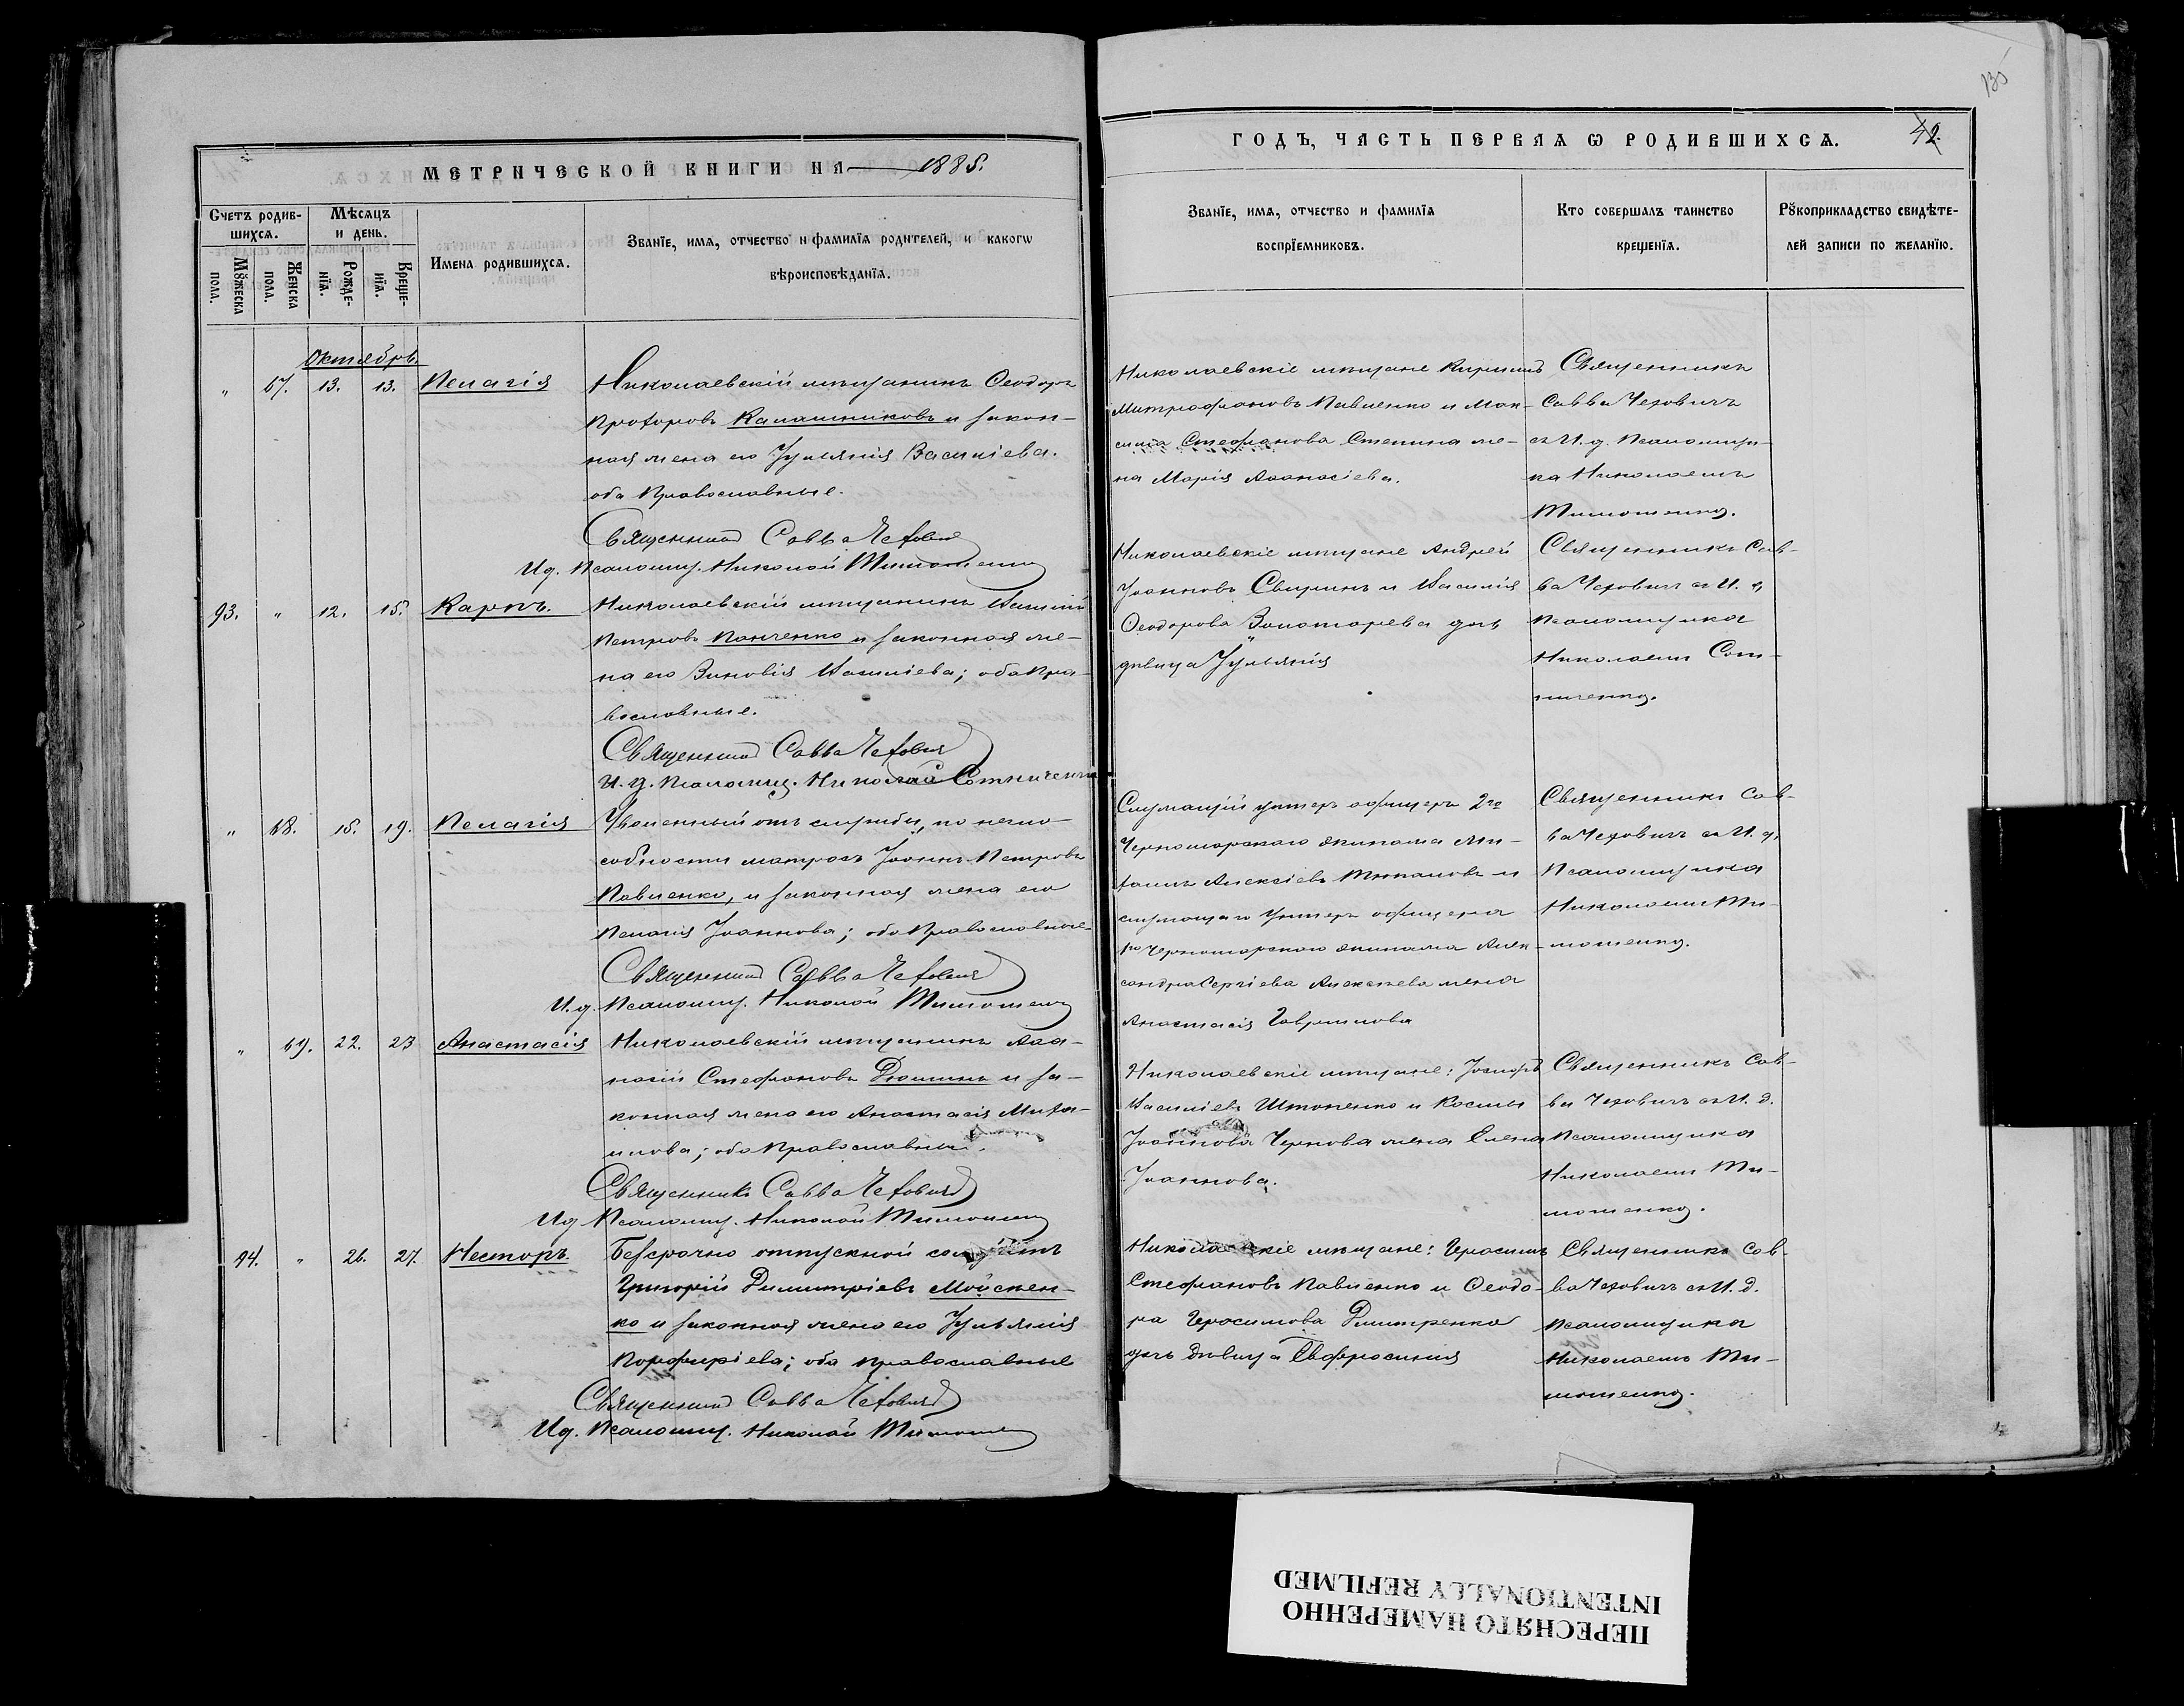 135
МЕТРИЧЕСКОЙ КНИГИ НА 1885.
Счетъ родив-
шихсѧ.
Мѣсѧцъ
и день.
Мꙋжеска
пола.
Женска
пола.
Рожде-
нїѧ.
Креще-
нїѧ.
Имена родившихсѧ.
Званїе, имѧ, отчество и фамилїѧ родителей, и какогѡ
вѣроисповѣданїѧ.
Октябрь
" 67. 13. 13. Пелагія
Николаевскій мѣщанинъ Ѳеодоръ
Прохоровъ Калашниковъ и закон-
ная жена его Іуліянія Василіева.
оба Православные.
Священникъ Савва Чеховичъ
И.д. Псаломщ. Николай Тимошенко
93. " 12. 15. Карпъ.
Николаевскій мѣщанинъ
Петровъ Панченко и законная же-
на его Зиновія Василіева; оба Пра-
вославные.
Священникъ Савва Чеховичъ
И. д. Псаломщ. Николай Сотниченко
" 68. 15. 19. Пелагія
Уволенный отъ службы, по неспо-
собности матросъ Іоаннъ Петровъ
Павленко, и законная жена его
Пелагія Іоаннова; оба Православные
Священникъ Савва Чеховичъ
И.д. Псаломщ. Николай Тимошенко
" 69. 22. 23 Анастасія
Николаевскій мѣщанинъ Аѳа-
насій Стефановъ Дюминъ и за-
конная жена его Анастасія Миха-
илова; оба Православные.
Священникъ Савва Чеховичъ
И.д. Псаломщ. Николай Тимошенко
94. " 26. 27. Несторъ
Безсрочно отпускной солдатъ
Григорій Димитріевъ Мойсеен-
ко и законная жена его Іуліянія
Порфиріева; оба православные
Священникъ Савва Чеховичъ
И.д. Псаломщ. Николай Тимошенко
ГОДЪ, ЧАСТЬ ПЕРВАѦ Ѡ РОДИВШИХСѦ. 42.
Званїе, имѧ, отчество и фамилїѧ
воспрїемниковъ.
Кто совершалъ таинство
крещенїѧ.
Рꙋкоприкладство свидѣте-
лей записи по желанїю.
Николаевскіе мѣщане Кириллъ
Митрофановъ Павленко и Мак-
сима Стефанова Степина же-
на Марія Аѳанасіева.
Священникъ
Савва Чеховичъ
съ И. д. Псаломщи-
ка Николаемъ
Тимошенко.
Николаевскіе мѣщане Андрей
Іоанновъ Свиринъ и Василія
Ѳеодорова Золотарева дочь
дѣвица Іуліянія
Священникъ Сав-
ва Чеховичъ съ И. д.
Псаломщика
Николаемъ Сот-
ниченко.
Служащій унтеръ офицеръ 2го
Черноморскаго экипажа Ми-
хаилъ Алексіевъ Тюкаловъ и
служащаго Унтеръ офицера
1го Черноморскаго экипажа Алек-
сандра Сергіева Алексѣева жена
Анастасія Гавриилова
Священникъ Сав-
ва Чеховичъ съ И. д.
Псаломщика
Николаемъ Ти-
мошенко.
Николаевскіе мѣщане: Іосифъ
Василіевъ Штоненко и Космы
Іоаннова Чернова жена Елена
Іоаннова.
Священникъ Сав-
ва Чеховичъ съ И. д.
Псаломщика
Николаемъ Ти-
мошенко.
Николаевскіе мѣщане: Герасимъ
Стефановъ Павленко и Ѳеодо-
ра Герасимова Дмитренко
дочь дѣвица Евфросинія
Священникъ Сав-
ва Чеховичъ съ И. д.
Псаломщика
Николаемъ Ти-
мошенко.
ПЕРЕСНЯТО НАМЕРЕННО
INTENTIONALLY REFILMED